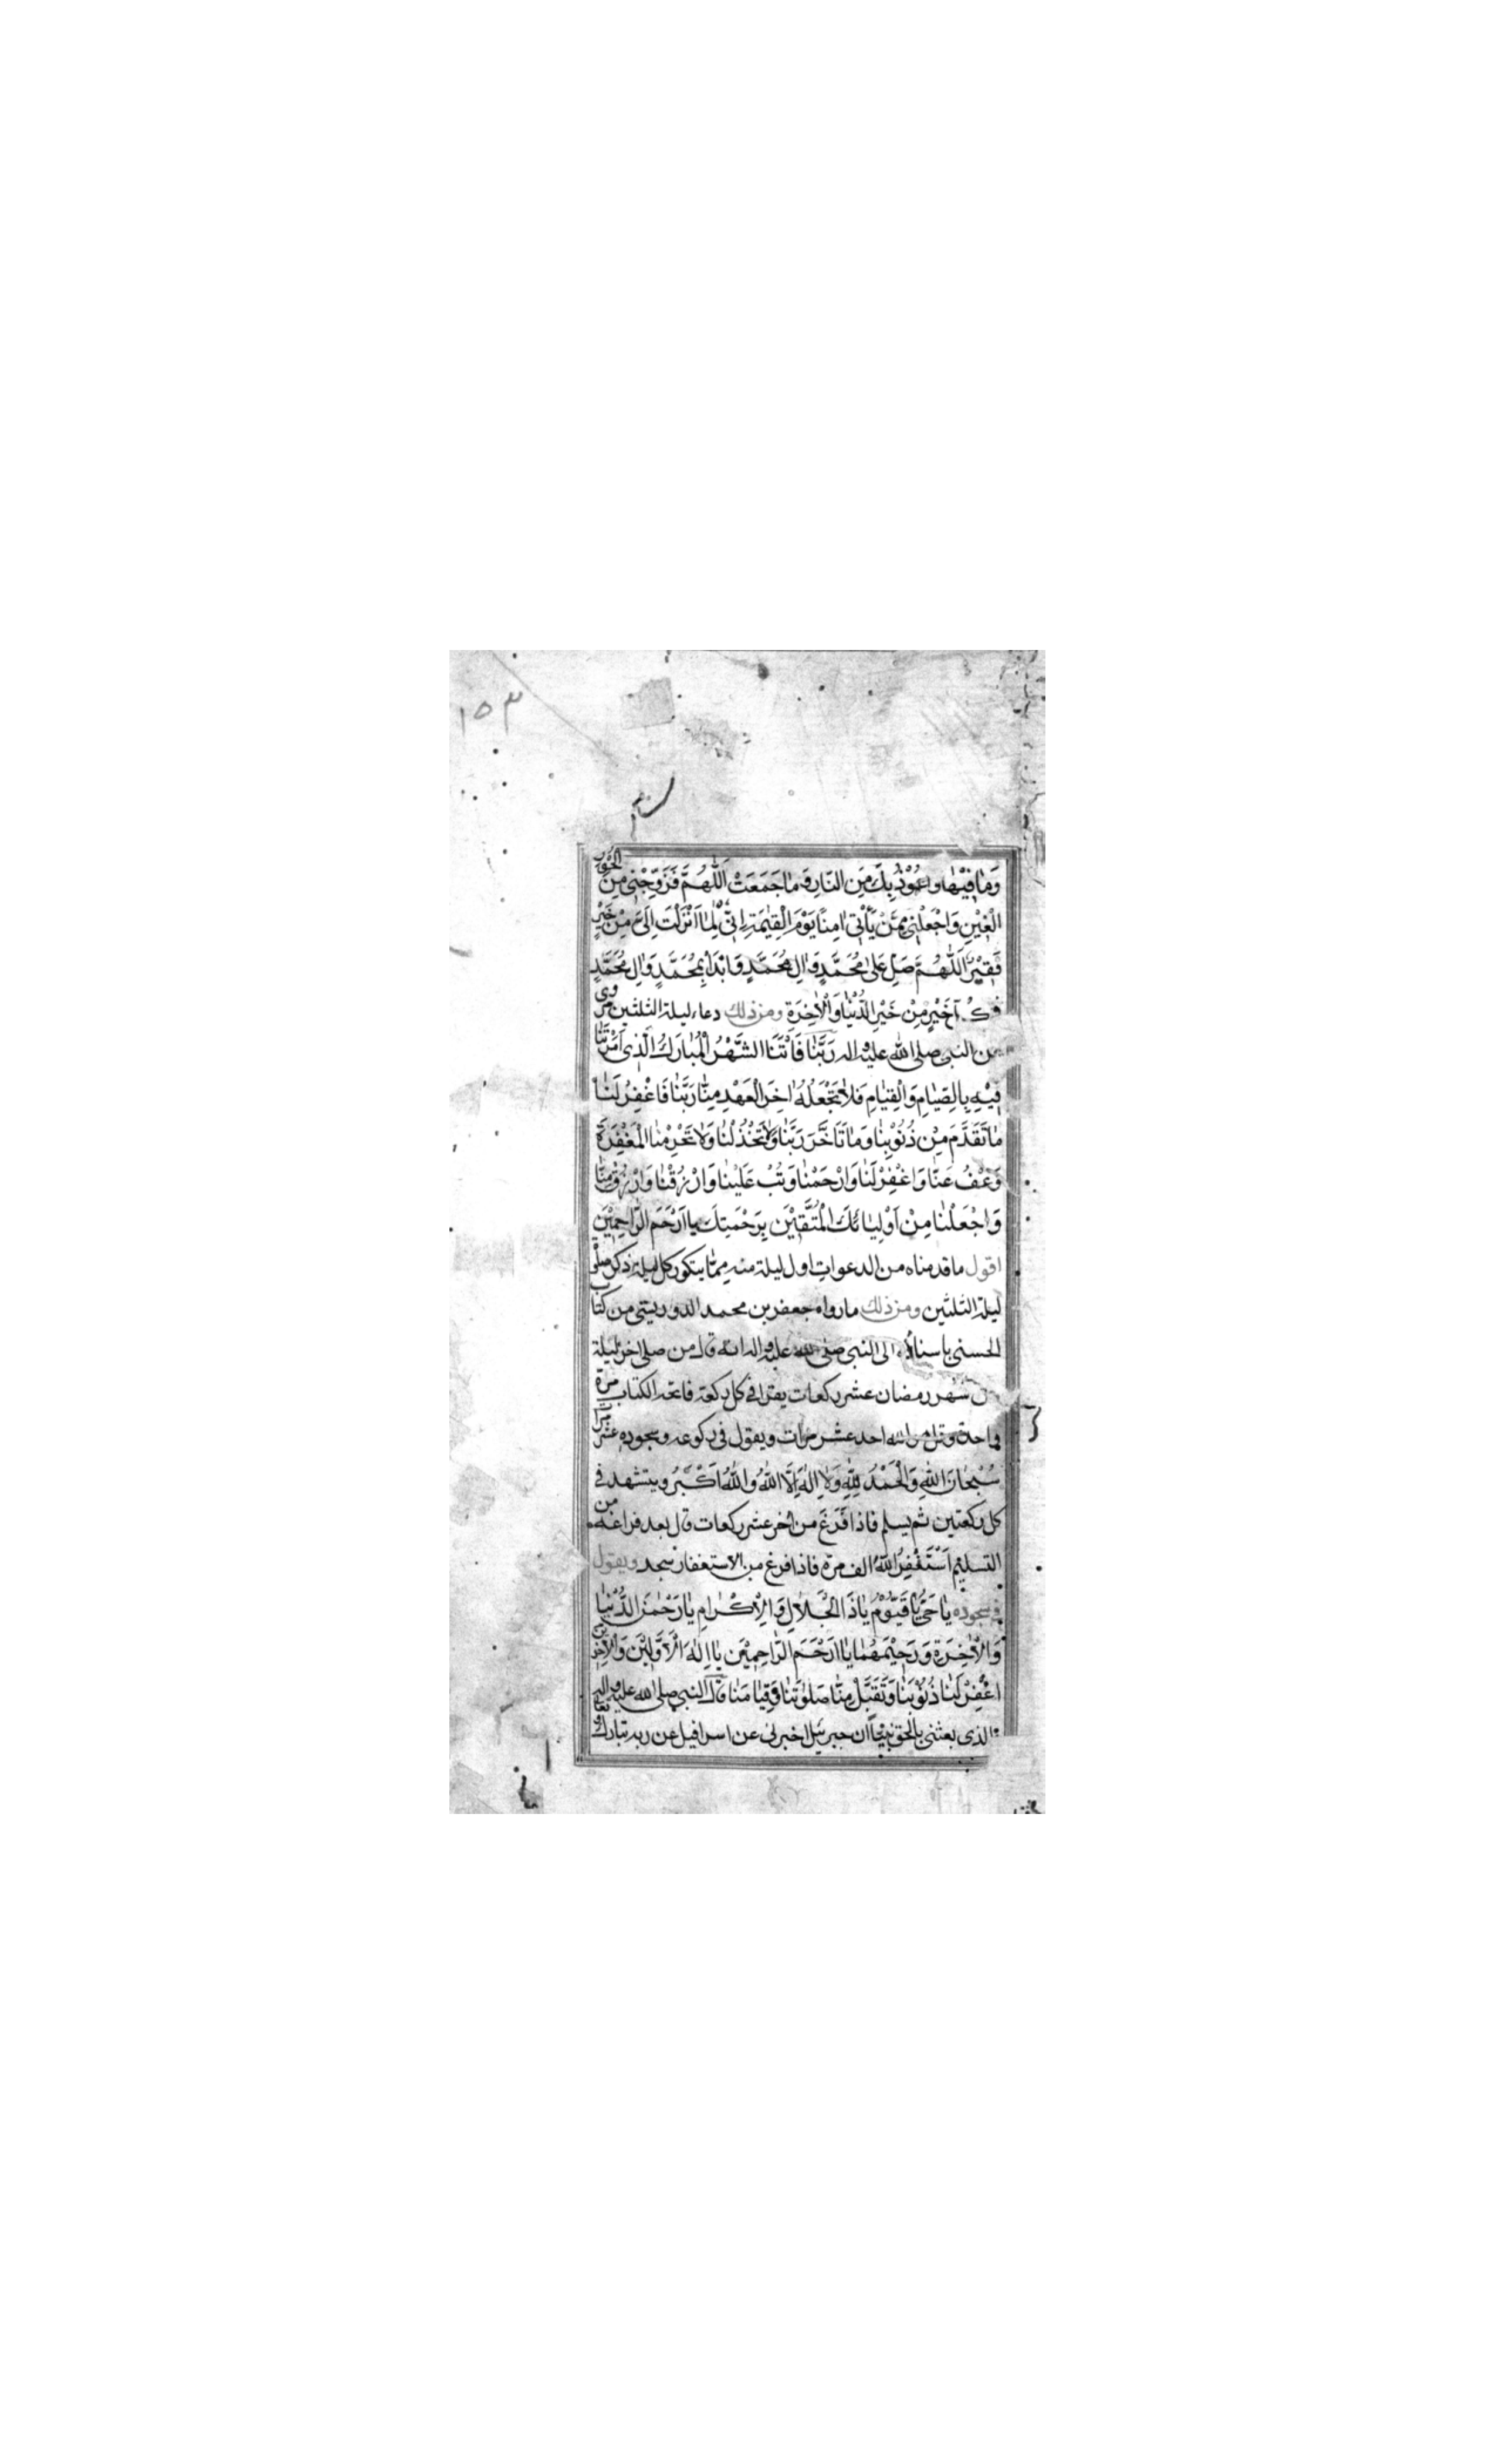 ١٥٣
وَمَا فِيْهَا وَاَعُوْذُ بِكَ مِنَ النَّارِ وَمَا جَمَعَتْ اَللّٰهُمَّ فَزَوِّجْنِي مِنَ الْحُوْرِ
الْعِيْنِ وَاجْعَلْنِي مِمَّنْ يَأْتِي اٰمِنًا يَوْمَ الْقِيٰمَةِ اِنِّي لِمَا اَنْزَلْتَ اِلَيَّ مِنْ خَيْرٍ
فَقِيْرٌ اَللّٰهُمَّ صَلِّ عَلٰى مُحَمَّدٍ وَاٰلِ مُحَمَّدٍ وَابْدَأْ بِمُحَمَّدٍ وَاٰلِ مُحَمَّدٍ
خَيْرٍ مِنْ خَيْرِ الدُّنْيَا وَالْاٰخِرَةِ ومن ذلك دعاء ليلة الثلثين مروي
عن النبي صلى الله عليه واله رَبَّنَا فَاتَنَا الشَّهْرُ الْمُبَارَكُ الَّذِي اَمَرْتَنَا
فِيْهِ بِالصِّيَامِ وَالْقِيَامِ فَلَا تَجْعَلْهُ اٰخِرَ الْعَهْدِ مِنَّا رَبَّنَا فَاغْفِرْ لَنَا
مَا تَقَدَّمَ مِنْ ذُنُوْبِنَا وَمَا تَاَخَّرَ رَبَّنَا وَلَا تَخْذُلْنَا وَلَا تَحْرِمْنَا الْمَغْفِرَةَ
وَعْفُ عَنَّا وَاغْفِرْ لَنَا وَارْحَمْنَا وَتُبْ عَلَيْنَا وَارْزُقْنَا وَارْزُقْ مِنَّا
وَاجْعَلْنَا مِنْ اَوْلِيَائِكَ الْمُتَّقِيْنَ بِرَحْمَتِكَ يَا اَرْحَمَ الرَّاحِمِيْنَ
اقول ما قدمناه من الدعوات اول ليلة منه مما يتكرر كل ليلة
ليلة الثلثين ومن ذلك ما رواه جعفر بن محمد الدوريستي من كتاب
الحسني باسناده الى النبي صلى الله عليه واله انه قال من صلى اخر ليلة
من شهر رمضان عشر ركعات يقرا في كل ركعة فاتحة الكتاب مرة
واحدة احد عشر مرات ويقول في ركوعه وسجوده عشر مرات
سُبْحَانَ اللهِ وَالْحَمْدُ لِلّٰهِ وَلَا اِلٰهَ اِلَّا اللهُ وَاللهُ اَكْبَرُ ويتشهد في
كل ركعتين ثم يسلم فاذا فَرَغَ من اخر عشر ركعات قال بعد فراغه من
التسليم اَسْتَغْفِرُ اللهَ الف مرة فاذا فرغ من الاستغفار سجد ويقول
في سجوده يَا حَيُّ يَا قَيُّوْمُ يَا ذَا الْجَلَالِ وَالْاِكْرَامِ يَا رَحْمٰنَ الدُّنْيَا
وَالْاٰخِرَةِ وَرَحِيْمَهُمَا يَا اَرْحَمَ الرَّاحِمِيْنَ يَا اِلٰهَ الْاَوَّلِيْنَ وَالْاٰخِرِيْنَ
اغْفِرْ لَنَا ذُنُوْبَنَا وَتَقَبَّلْ مِنَّا صَلٰوتَنَا وَقِيَامَنَا قال النبي صلى الله عليه واله
والذي بعثني بالحق نبيًّا ان جبرئيل اخبرني عن اسرافيل عن ربه تبارك وتعالى